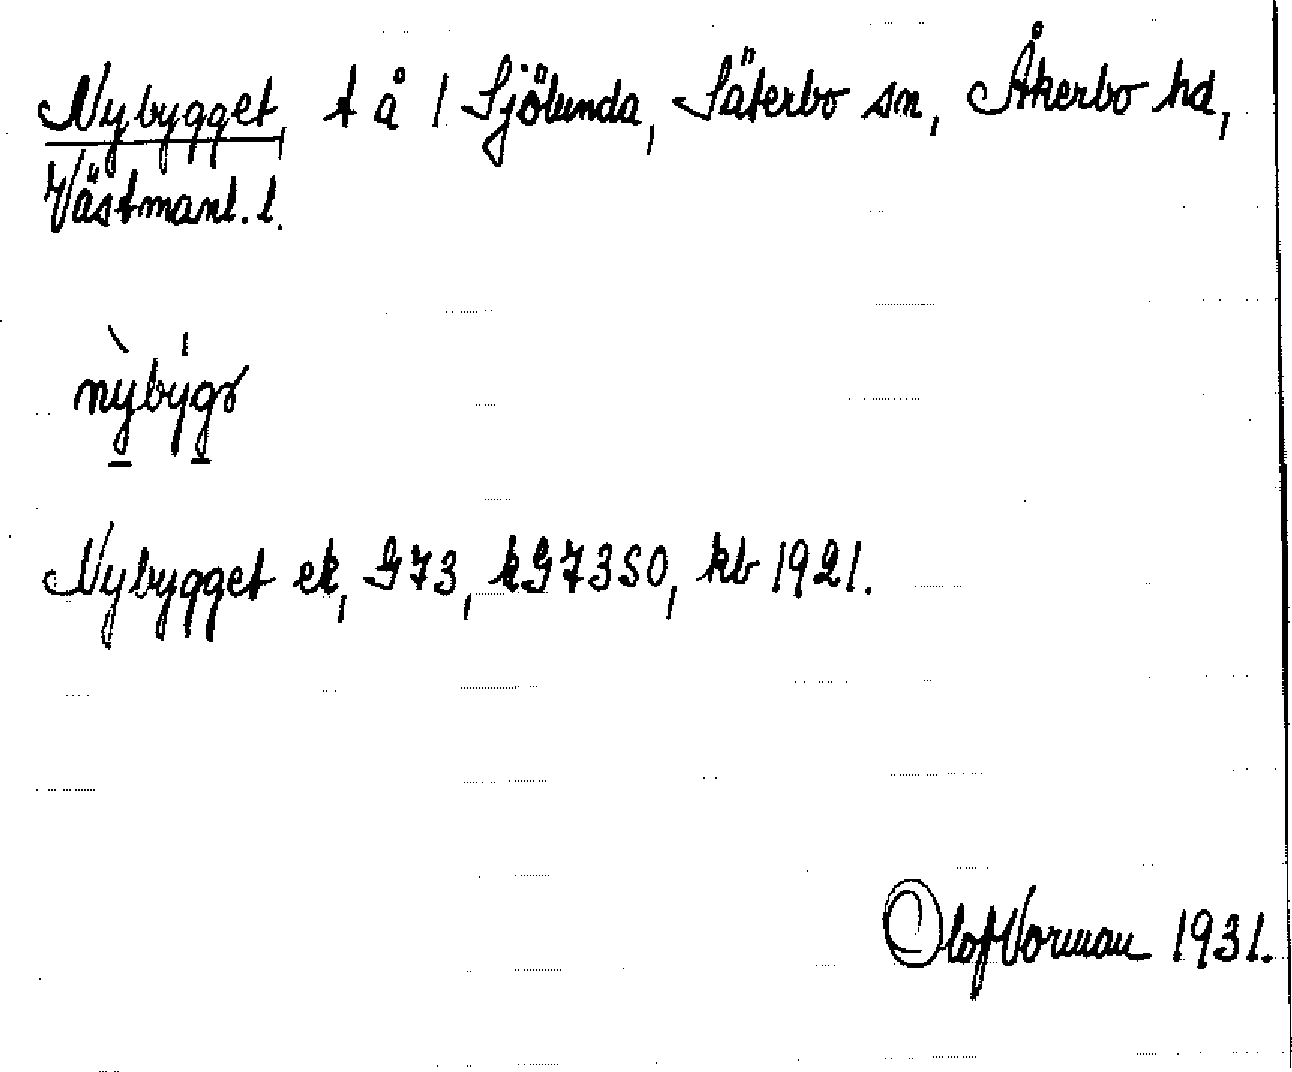 Nybygget, t å 1 Sjölunda, Säterbo sn, Åkerbo hd,
Västmanl. l.
nỳbýgə
Nybygget ek, G73, kG73SO, kb 1921.
Olof Vorman 1931.